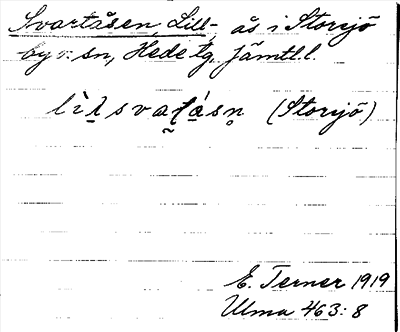 Svartåsen, Lill-, ås i Storsjö
by o. sn, Hede tg, Jämtl. l.
lìl̠svat̠á̠sn̥ (Storsjö)
E. Terner 1919
Ulma 463:8